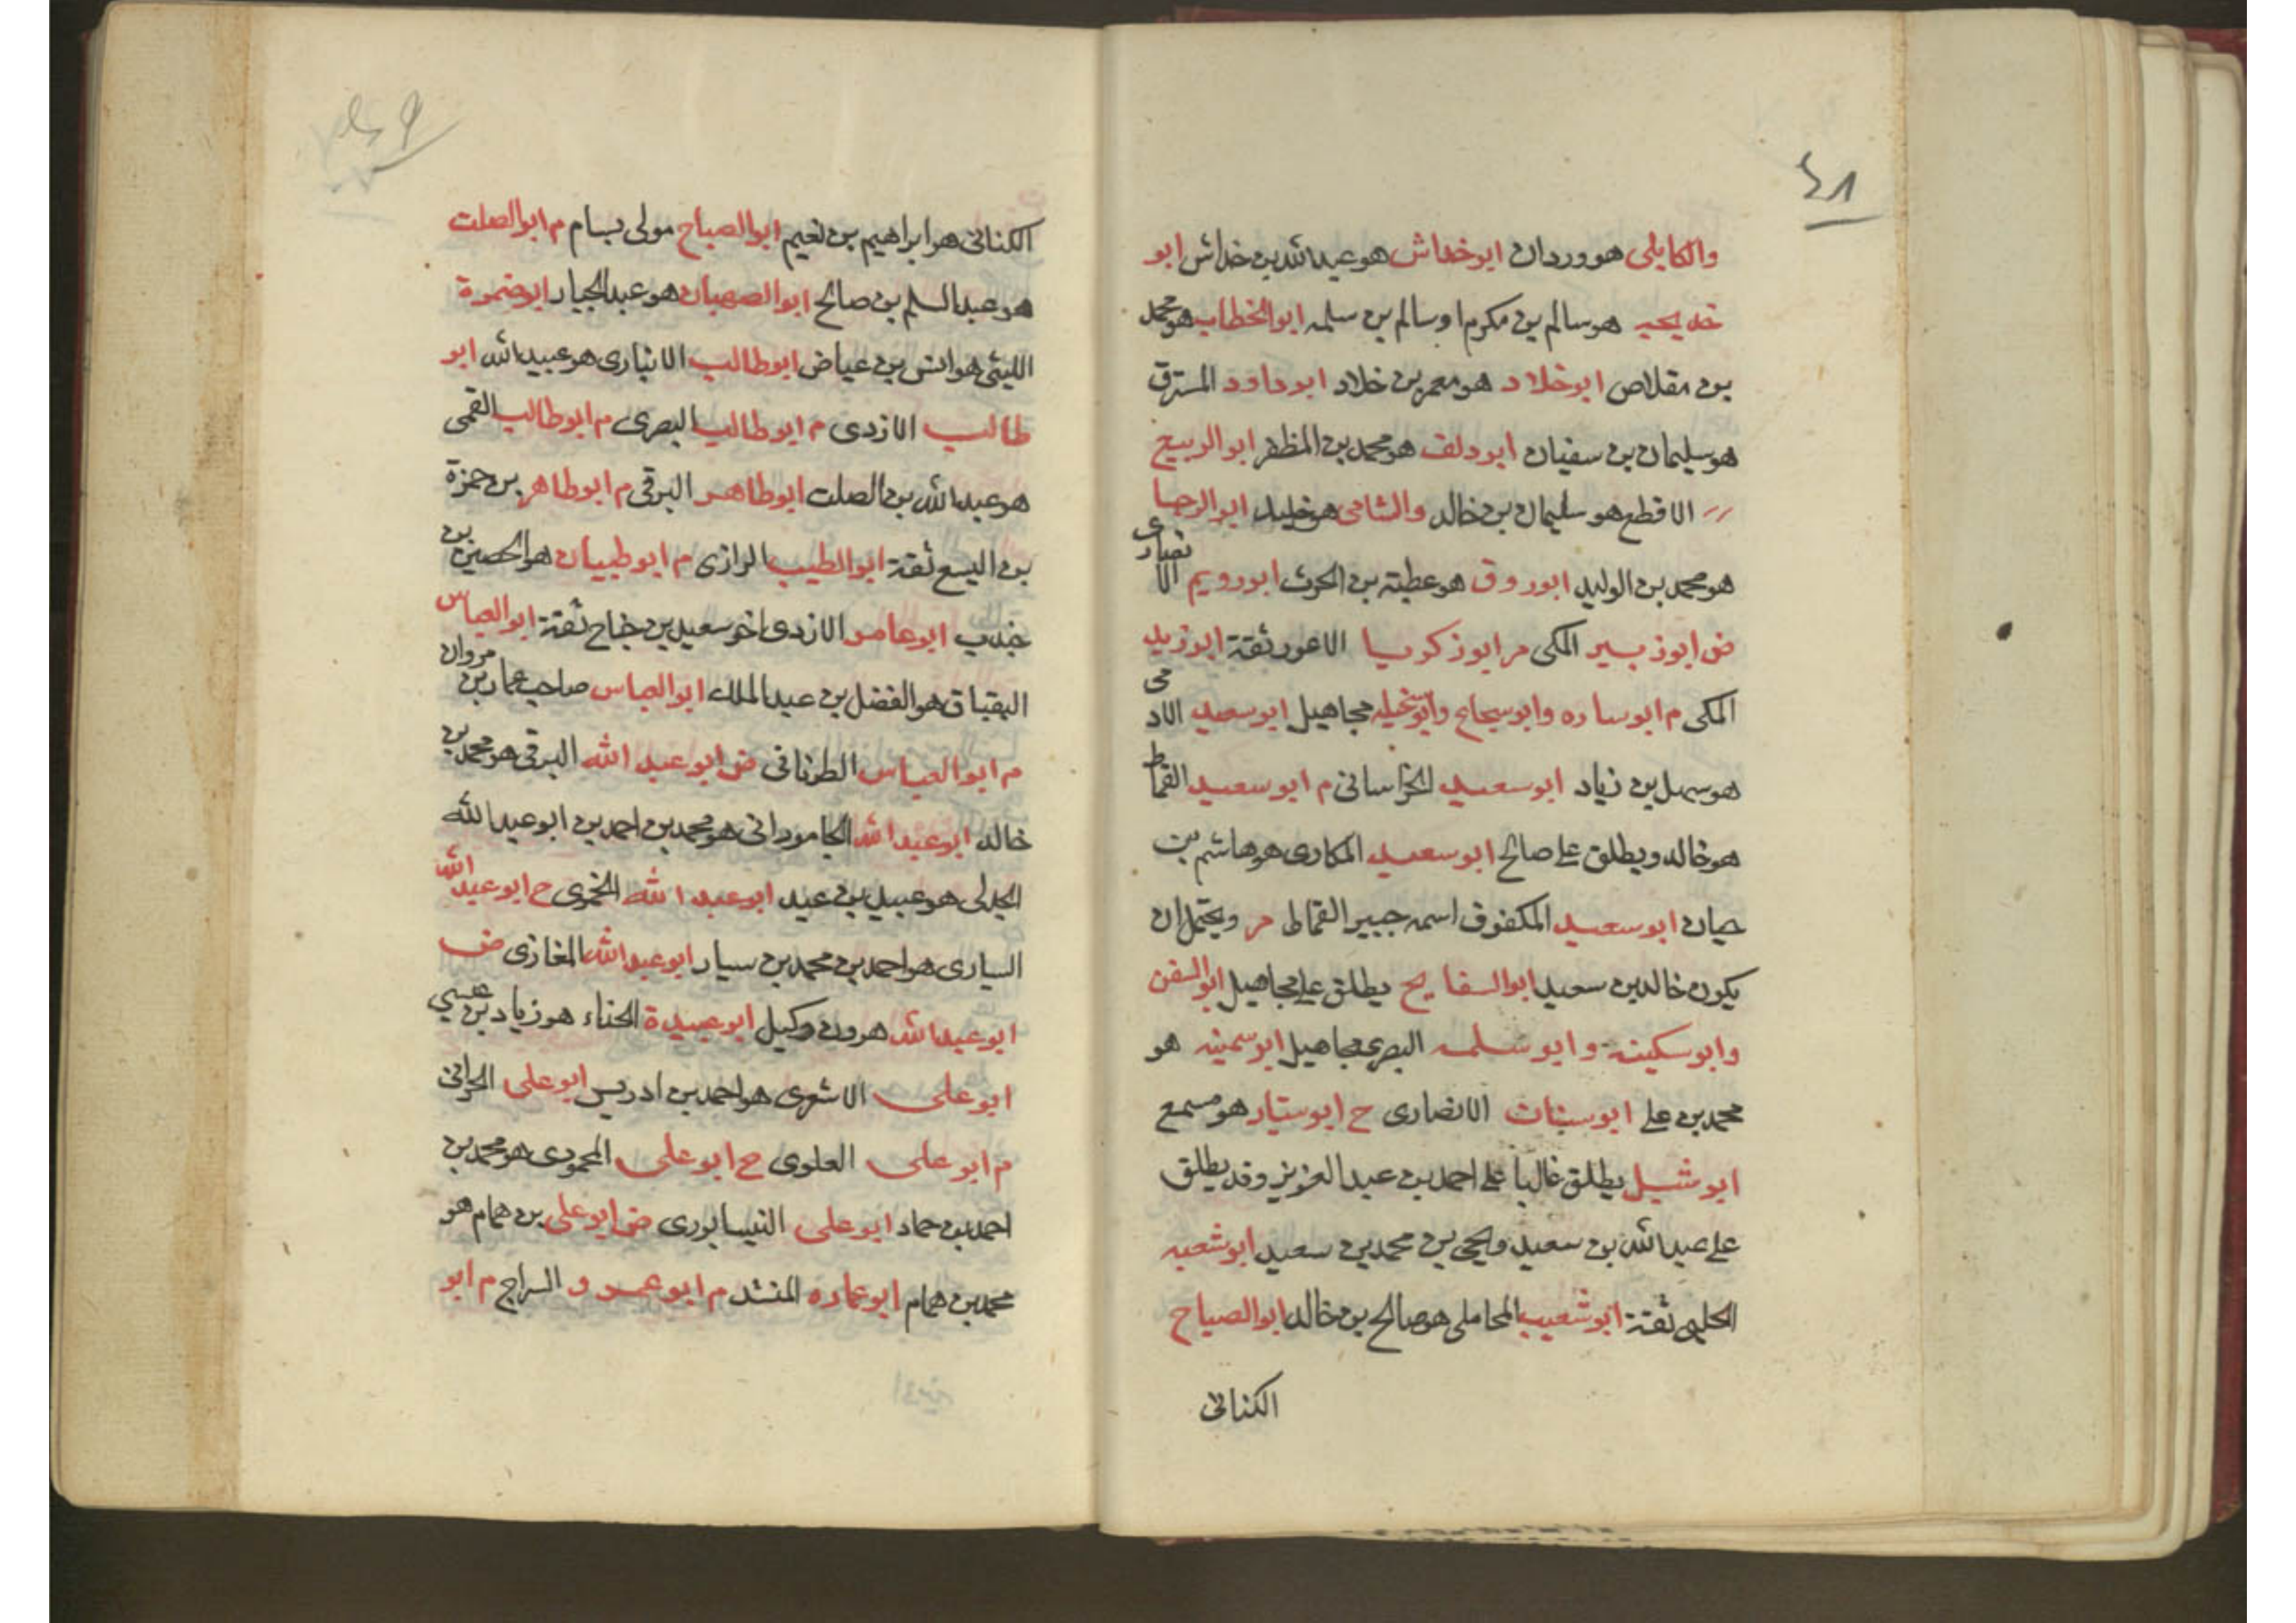 ٤٨
والكابلي هو وردان ابو خداش هو عبد الله بن خداش ابو
خديجه هو سالم بن مكرم او سالم بن سلمه ابو الخطاب هو محمد
بن مقلاص ابو خلاد هو معمر بن خلاد ابو داود المسترق
هو سليمان بن سفيان ابو دلف هو محمد بن المظفر ابو الربيع
الاقطع هو سليمان بن خالد والشامي هو خليد ابو الرجا
هو محمد بن الوليد ابو روق هو عطية بن الحرث ابو رويم الانصاري
ض ابو زبير المكي م ابو زكريا الاعور ثقة ابو زيد
المكي م ابو ساره وابو سحاح وابو سخيله مجاهيل ابو سعيد الادمي
هو سهل بن زياد ابو سعيد الخراساني م ابو سعيد القماط
هو خالد ويطلق على صالح ابو سعيد المكاري هو هاشم بن
حيان ابو سعيد المكفوف اسمه جبير القماط م ويحتمل ان
يكون خالد بن سعيد ابو السفايح يطلق على مجاهيل ابو السفن
وابو سكينه وابو سلمه البصري مجاهيل ابو سمينه هو
محمد بن علي ابو سنان الانصاري ح ابو سيار هو مسمع
ابو شبل يطلق غالبا على احمد بن عبد العزيز وقد يطلق
على عبد الله بن سعيد ويحيى بن محمد بن سعيد ابو شعبه
الحلبي ثقة ابو شعيب المحاملي هو صالح بن خالد ابو الصباح
الكناني
الكناني هو ابراهيم بن نعيم ابو الصباح مولى بسام م ابو الصلت
هو عبد السلم بن صالح ابو الصهبان هو عبد الجبار ابو ضمرة
الليثي هو انس بن عياض ابو طالب الانباري هو عبيد الله ابو
طالب الازدي م ابو طالب البصري م ابو طالب القمي
هو عبد الله بن الصلت ابو طاهر البرقي م ابو طاهر بن حمزة
بن اليسع ثقة ابو الطيب الرازي م ابو ظبيان هو الحصين بن
جندب ابو عامر الازدي اخو سعيد بن جناح ثقة ابو العباس
البقباق هو الفضل بن عبد الملك ابو العباس صاحب عمار بن مروان
م ابو العباس الطرناني ض ابو عبد الله البرقي هو محمد بن
خالد ابو عبد الله الجاموراني هو محمد بن احمد بن ابو عبد الله
الجدلي هو عبيد بن عبد ابو عبد الله الخمري ح ابو عبد الله
السياري هو احمد بن محمد بن سيار ابو عبد الله المغازي ض
ابو عبد الله هرون وكيل ابو عبيدة الحذاء هو زياد بن عيسى
ابو علي الاشعري هو احمد بن ادريس ابو علي الحراني
م ابو علي العلوي ح ابو علي المحمودي هو محمد بن
احمد بن حماد ابو علي النيسابوري ض ابو علي بن همام هو
محمد بن همام ابو عماره المنشد م ابو عمرو السراج م ابو